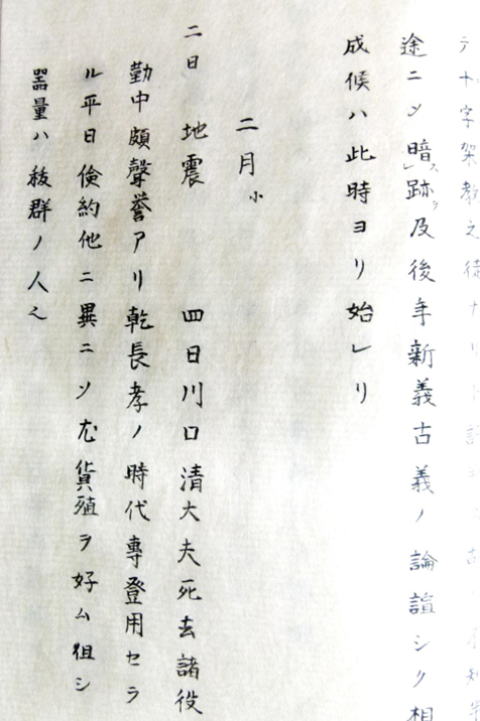 テ十字架教之徒ナリト
途ニメ暗跡及後年新義古義ノ論誼シク相
成候ハ此時ヨリ始レリ
二月小
二日 地震 四日川口清大夫死去諸役
勤中頗聲誉アリ乾長孝ノ時代專登用セラ
ル平日倹約他ニ異ニソ尤貨殖ヲ好ム徂シ
器量ハ秡群ノ人之